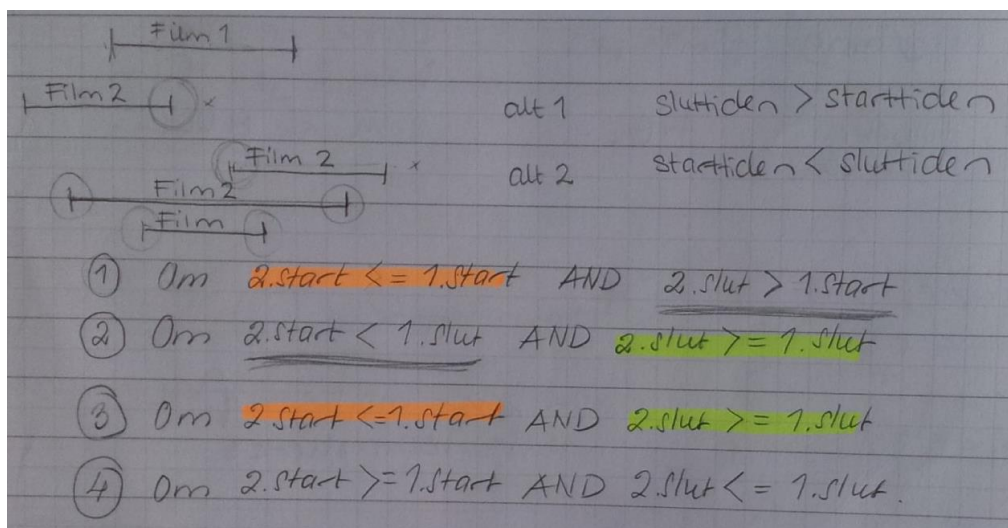 Film 1
Film 2 x alt 1 sluttiden > starttiden
Film 2 x alt 2 starttiden < sluttiden
Film 2
Film
① Om 2.start <= 1.start AND 2.slut > 1.start
② Om 2.start < 1.slut AND 2.slut >= 1.slut
③ Om 2.start <= 1.start AND 2.slut >= 1.slut
④ Om 2.start >= 1.start AND 2.slut <= 1.slut.